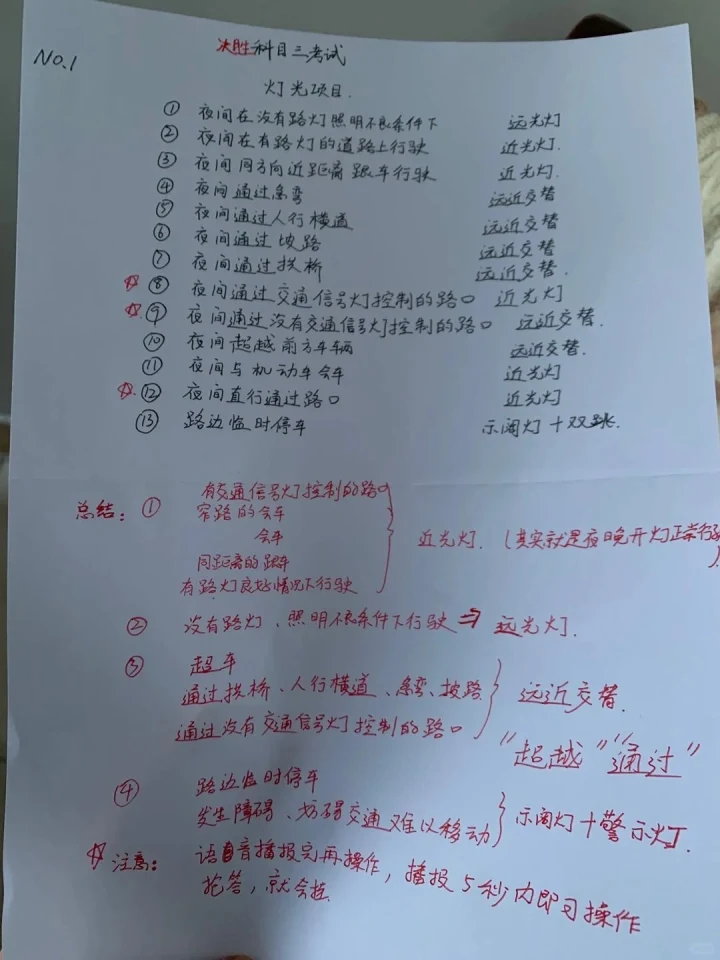 No.1
决胜科目三考试
灯光项目.
① 夜间在没有路灯照明不良条件下 远光灯
② 夜间在有路灯的道路上行驶 近光灯.
③ 夜间同方向近距离跟车行驶 近光灯.
④ 夜间通过急弯 远近交替
⑤ 夜间通过人行横道 远近交替
⑥ 夜间通过坡路 远近交替
⑦ 夜间通过拱桥 远近交替.
☆ ⑧ 夜间通过交通信号灯控制的路口 近光灯
☆ ⑨ 夜间通过没有交通信号灯控制的路口 远近交替.
⑩ 夜间超越前方车辆 远近交替.
⑪ 夜间与机动车会车 近光灯
☆ ⑫ 夜间直行通过路口 近光灯
⑬ 路边临时停车 示阔灯+双跳.
总结: ① 有交通信号灯控制的路口
窄路的会车
会车 近光灯. (其实就是夜晚开灯正常行驶)
同距离的跟车
有路灯良好情况下行驶
② 没有路灯、照明不良条件下行驶 ⇒ 远光灯.
③ 超车
通过拱桥、人行横道、急弯、坡路 远近交替.
通过没有交通信号灯控制的路口
"超越" "通过"
④ 路边临时停车
发生障碍、妨碍交通难以移动 示阔灯+警示灯.
☆ 注意: 语音播报完再操作, 播报5秒内即可操作
抢答, 就会挂